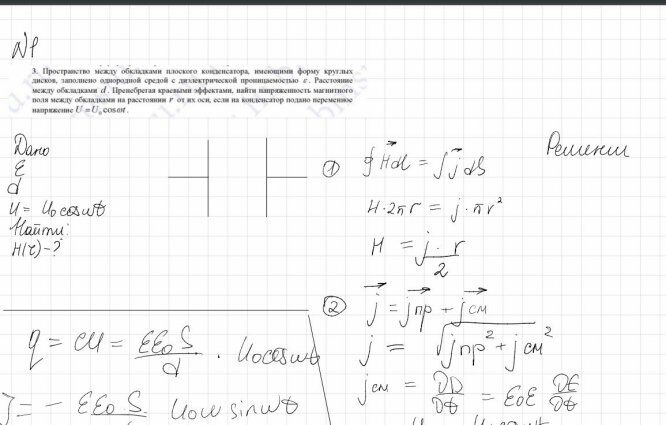 №1
3. Пространство между обкладками плоского конденсатора, имеющими форму круглых
дисков, заполнено однородной средой с диэлектрической проницаемостью ε. Расстояние
между обкладками d. Пренебрегая краевыми эффектами, найти напряженность магнитного
поля между обкладками на расстоянии r от их оси, если на конденсатор подано переменное
напряжение U = U₀cosωt.
Дано
ε
d
U = U₀cosωt
Найти:
H(r)-?
Решение
① ∮H⃗dl = ∫j⃗dS
H·2πr = j·πr²
H = j·r/2
② j⃗ = j⃗пр + j⃗см
j = √(jпр² + jсм²)
jсм = DD/Dt = ε₀ε DE/Dt
q = CU = εε₀S/d · U₀cosωt
J = - εε₀S U₀ω sinωt